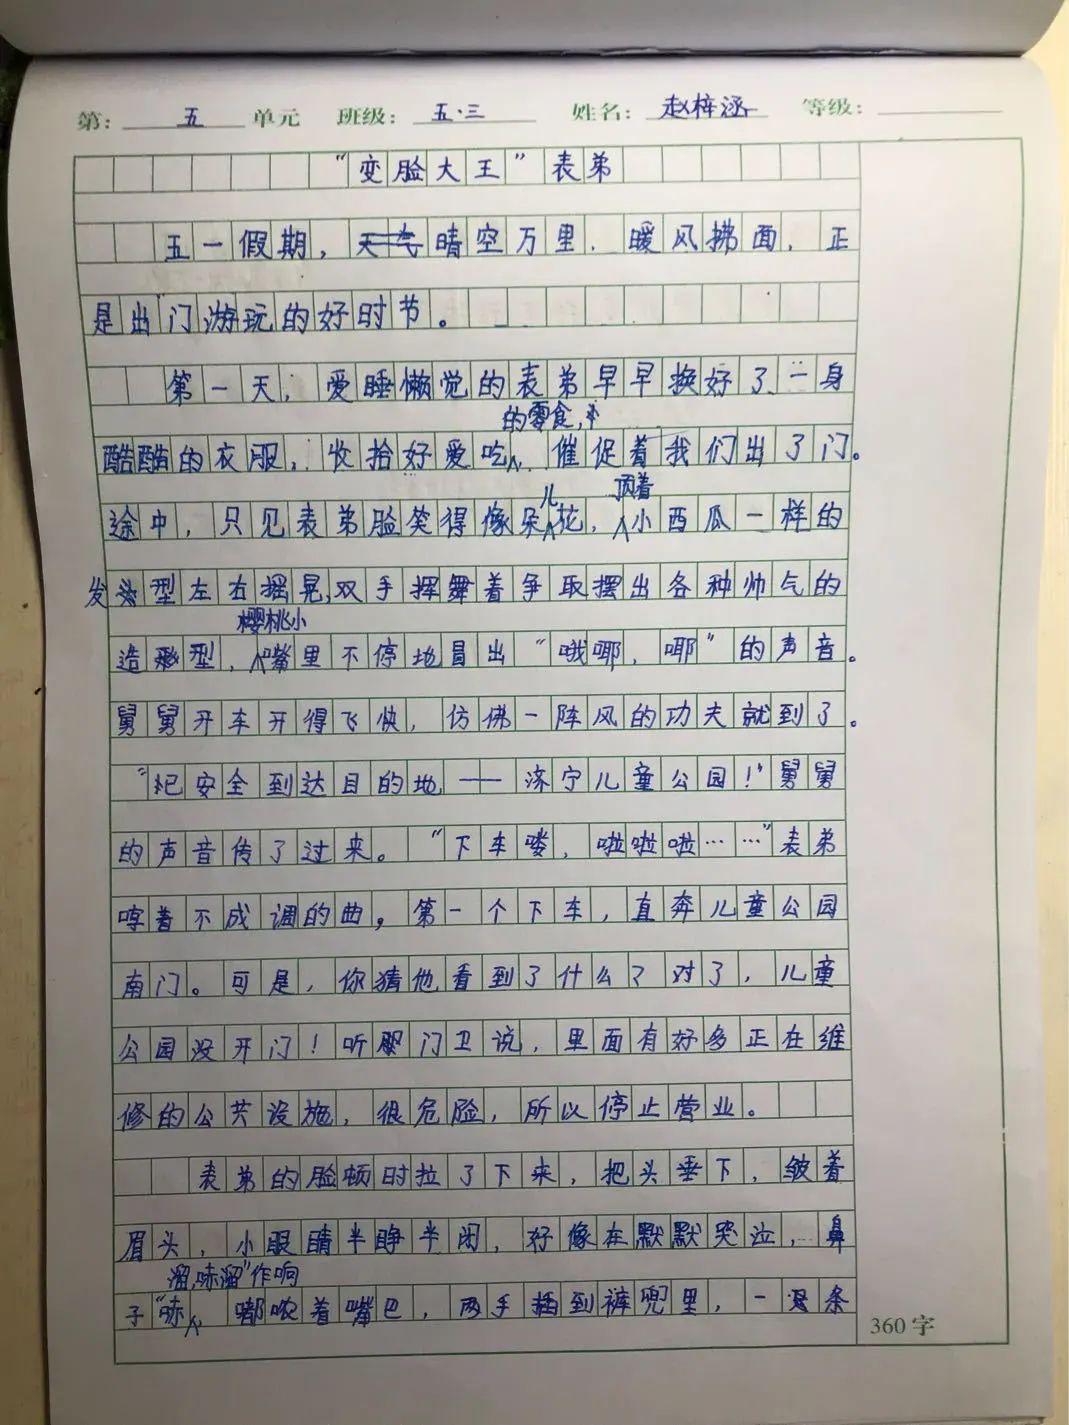 第：五 单元 班级：五·三 姓名：赵梓涵 等级：
“变脸大王”表弟
五一假期，天气晴空万里，暖风拂面，正
是出门游玩的好时节。
第一天，爱睡懒觉的表弟早早换好了一身
的零食，
酷酷的衣服，收拾好爱吃催促着我们出了门。
儿 顶着
途中，只见表弟脸笑得像朵花，小西瓜一样的
发型左右摇晃，双手挥舞着争取摆出各种帅气的
樱桃小
造型，嘴里不停地冒出“哦耶，耶”的声音。
舅舅开车开得飞快，仿佛一阵风的功夫就到了。
“已安全到达目的地——济宁儿童公园！”舅舅
的声音传了过来。“下车喽，啦啦啦……”表弟
哼着不成调的曲，第一个下车，直奔儿童公园
南门。可是，你猜他看到了什么？对了，儿童
公园没开门！听门卫说，里面有好多正在维
修的公共设施，很危险，所以停止营业。
表弟的脸顿时拉了下来，把头垂下，皱着
眉头，小眼睛半睁半闭，好像在默默哭泣，鼻
溜，哧溜”作响
子“哧，嘟哝着嘴巴，两手插到裤兜里，一条
360字